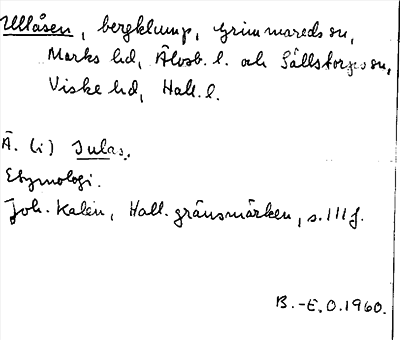 Ullåsen, bergklump, Grimmareds sn,
Marks hd, Älvsb. l. och Sällstorps sn,
Viske hd, Hall. l.
Ä. (i) Julas,
Etymologi.
Joh. Kalén, Hall. gränsmärken, s. 111 f.
B.-E. O. 1960.